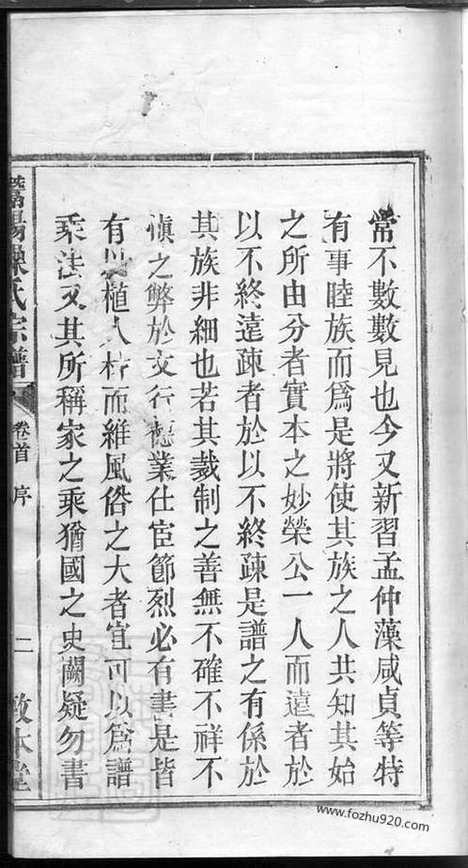 常不數數見也今又新習孟仲藻咸貞等特
有事睦族而為是將使其族之人共知其始
之所由分者實本之妙榮公一人而遠者於
以不終遠疎者於以不終疎是譜之有係於
其族非細也若其裁制之善無不確不祥不
慎之弊於文行德業仕宦節烈必有書是皆
有以植人材而維風俗之大者宜可以為譜
乘法又其所稱家之乘猶國之史闕疑勿書
陽操氏宗譜
卷首
序
二
敦本堂
www.fozhu920.com